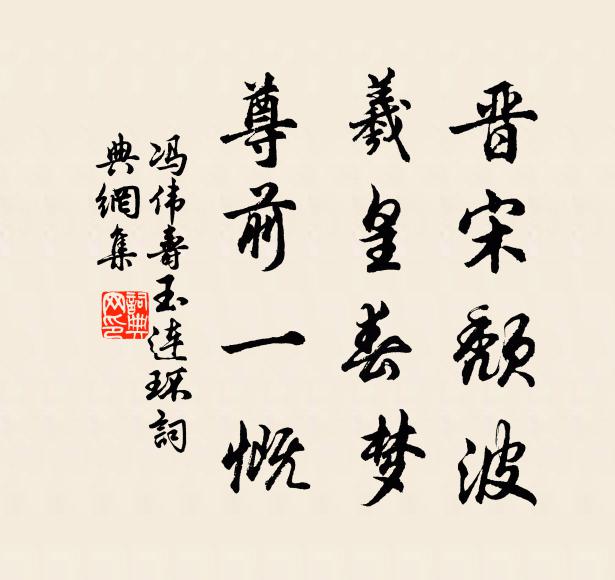 晋宋颓波
羲皇春梦
尊前一慨
冯伟寿玉连环詞
典網集
詞典网印